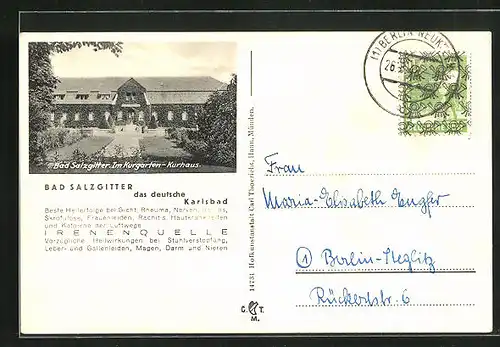 Bad Salzgitter. Im Kurgarten - Kurhaus.
BAD SALZGITTER
das deutsche
Karlsbad
Beste Heilerfolge bei Gicht, Rheuma, Nerven,
Skrofulose, Frauenleiden, Rachitis, Hautkrankheiten
und Katarrhe der Luftwege
IRENENQUELLE
Vorzügliche Heilwirkungen bei Stuhlverstopfung,
Leber- und Gallenleiden, Magen, Darm und Nieren
14731 Hofkunstanstalt Carl Thoericht, Hann. Münden.
C. T.
M.
(1) BERLIN NEUK
26.
Frau
Maria-Elisabeth Engler
1 Berlin-Steglitz
Rückertstr. 6